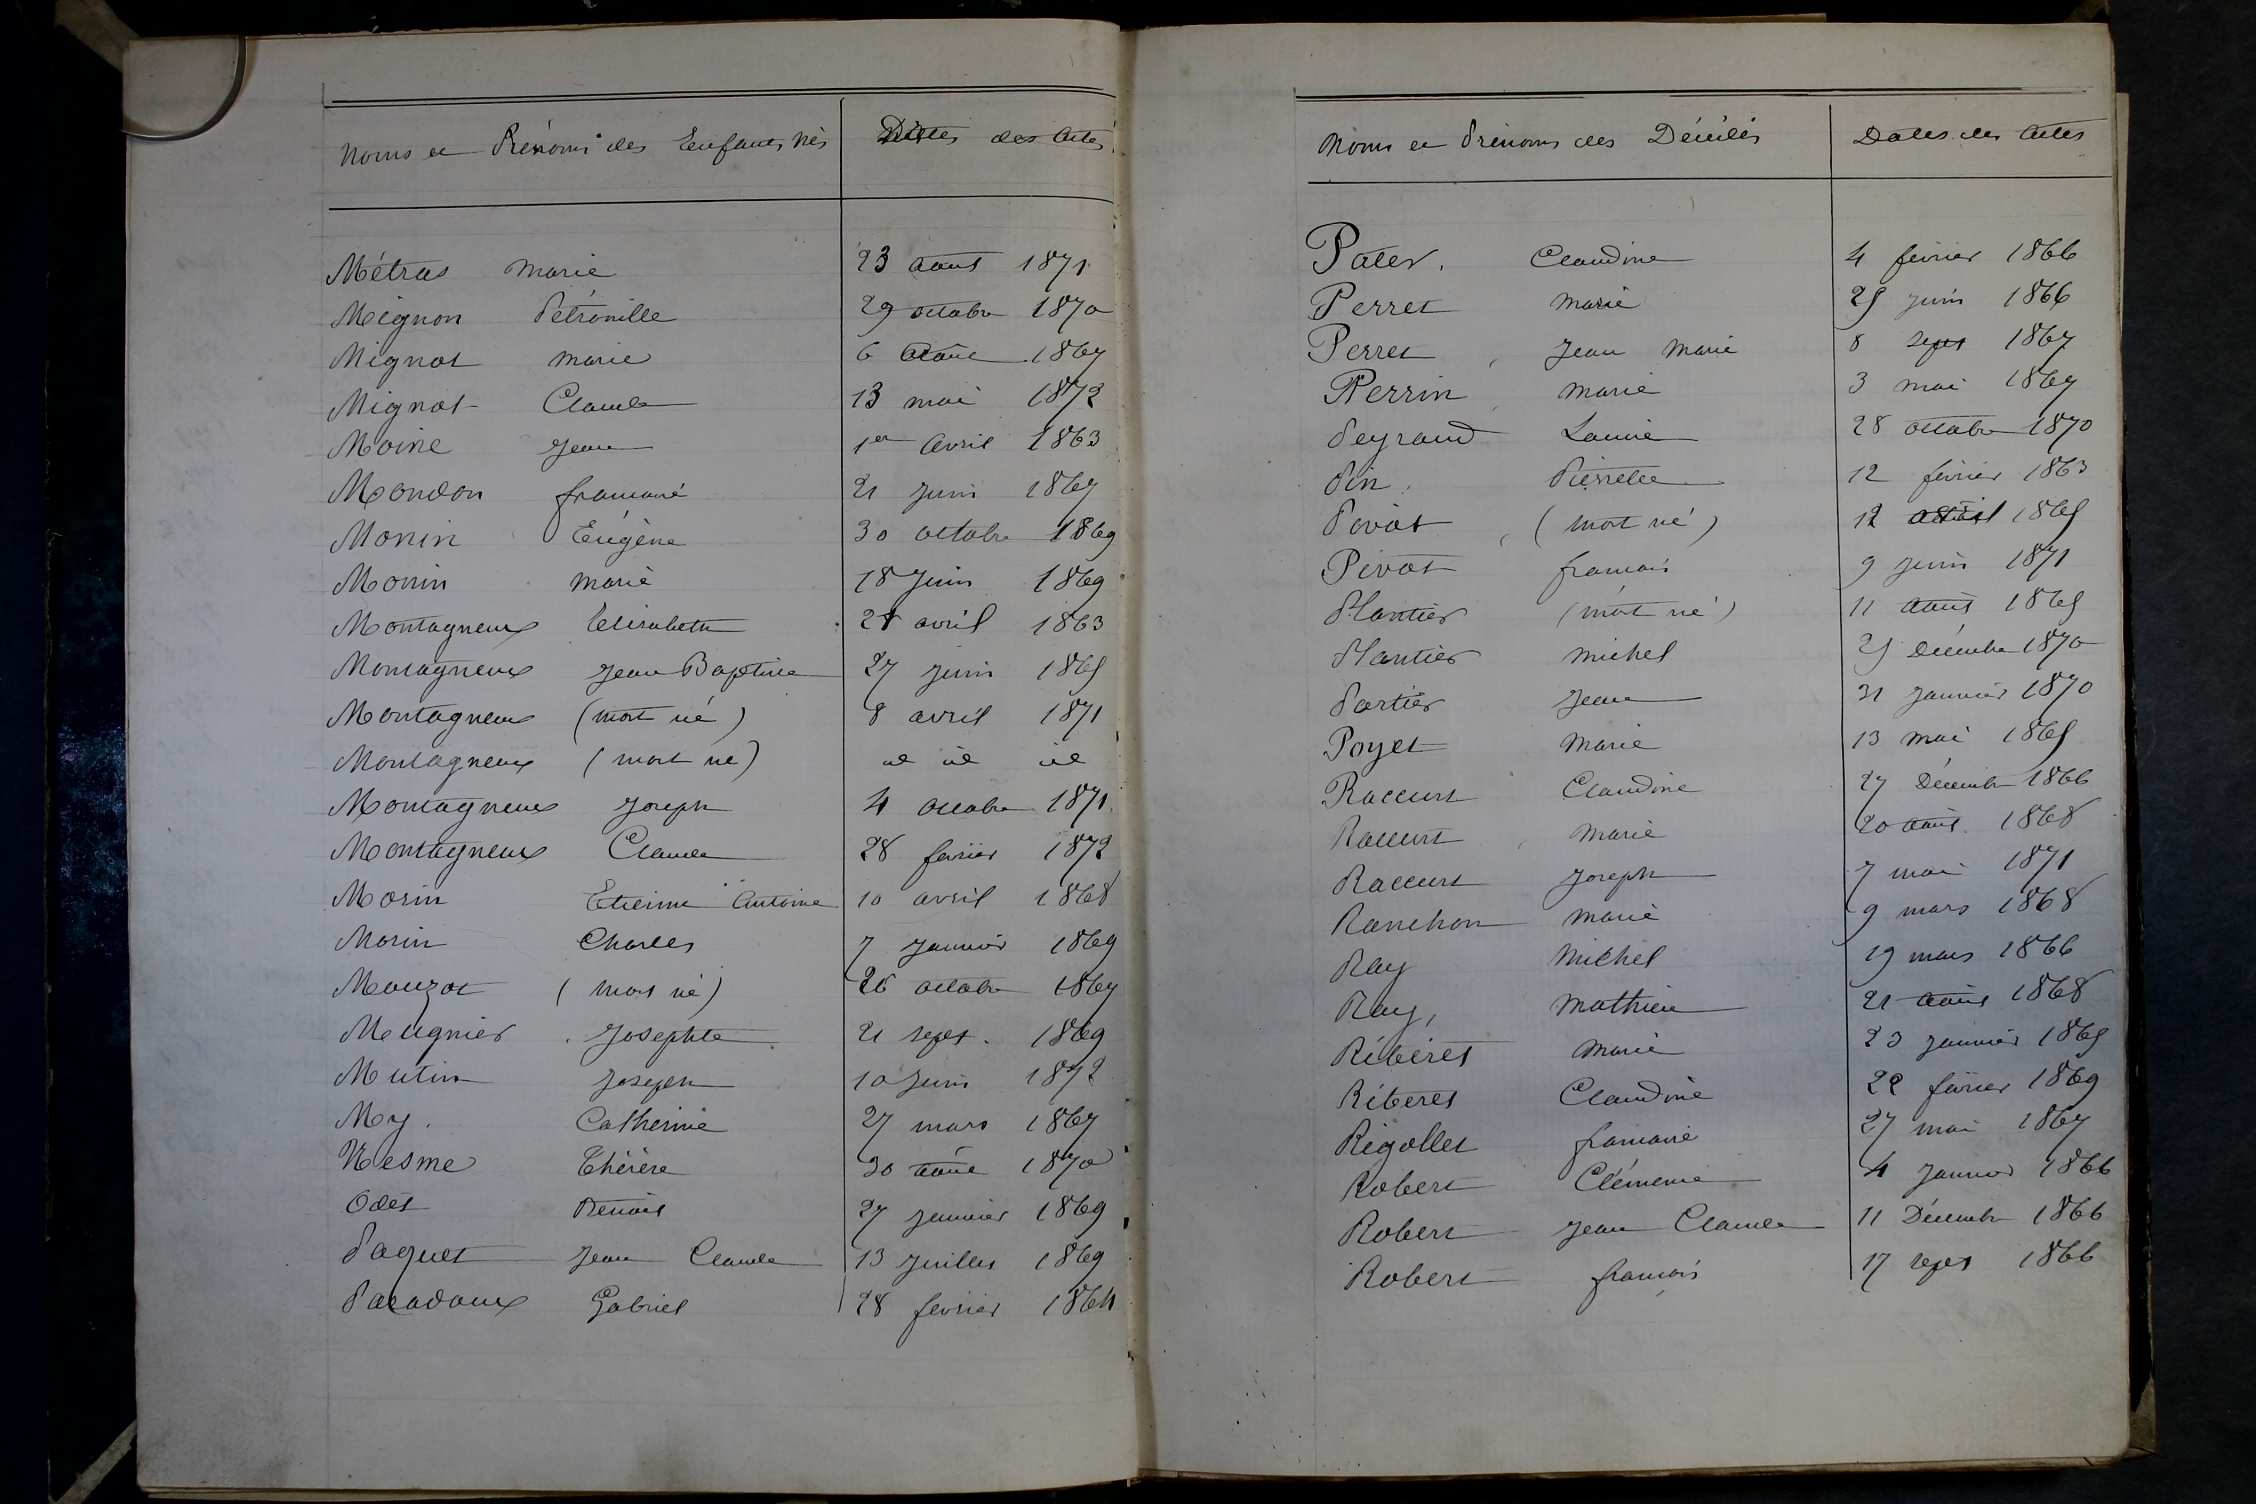 Noms et Prénoms des Enfants Nés Dates des Actes
Métras Marie 23 aout 1871
Mignon Pétronille 29 octobre 1870
Mignot Marie 6 Aout 1867
Mignot Claude 13 mai 1872
Moine Jean 1er Avril 1863
Mondon françoise 21 Juin 1867
Monin Eugène 30 octobre 1869
Monin Marie 18 Juin 1869
Montagneux Elisabeth avril 1863
Montagneux Jean Baptiste 27 juin 1865
Montagneux (mort né) 8 avril 1871
Montagneux (mort né) id id id
Montagneux Joseph 4 octobre 1871
Montagneux Claude 28 février 1872
Morin Etienne Antoine 10 avril 1868
Morin Charles 7 Janvier 1869
Mouzot (mort né) 26 octobre 1867
Mugnier Josephte 21 sept. 1869
Mutin Joseph 10 Juin 1872
My. Catherine 27 mars 1867
Nesme Thérèse 30 Août 1870
Odet Benoit 27 janvier 1869
Paquet Jean Claude 13 Juillet 1869
Paradoux Gabriel 28 février 1864
Noms et Prénoms des Décédés Dates des Actes
Pater. Claudine 4 février 1866
Perret Marie 25 juin 1866
Perret Jean Marie 8 sept 1867
Perrin Marie 3 mai 1867
Peyraud Louise 28 octobre 1870
Pin. Pierrette 12 février 1863
Pivot (mort né) 12 1865
Pivot françois 9 juin 1871
Plantier (mort né) 11 août 1865
Plantier Michel 25 Décembre 1870
Portier Jean 31 Janvier 1870
Poyet Marie 13 mai 1865
Raccurt Claudine 27 Décembre 1866
Raccurt Marie 20 août 1868
Raccurt Joseph 7 mai 1871
Ranchon Marie 9 mars 1868
Ray Michel 19 mars 1866
Ray, Mathieu 21 août 1868
Ribéret Marie 23 janvier 1865
Ribéret Claudine 22 février 1869
Rigollet françoise 27 mai 1867
Robert Clémence 4 Janvier 1866
Robert Jean Claude 11 Décembre 1866
Robert françois 17 sept 1866